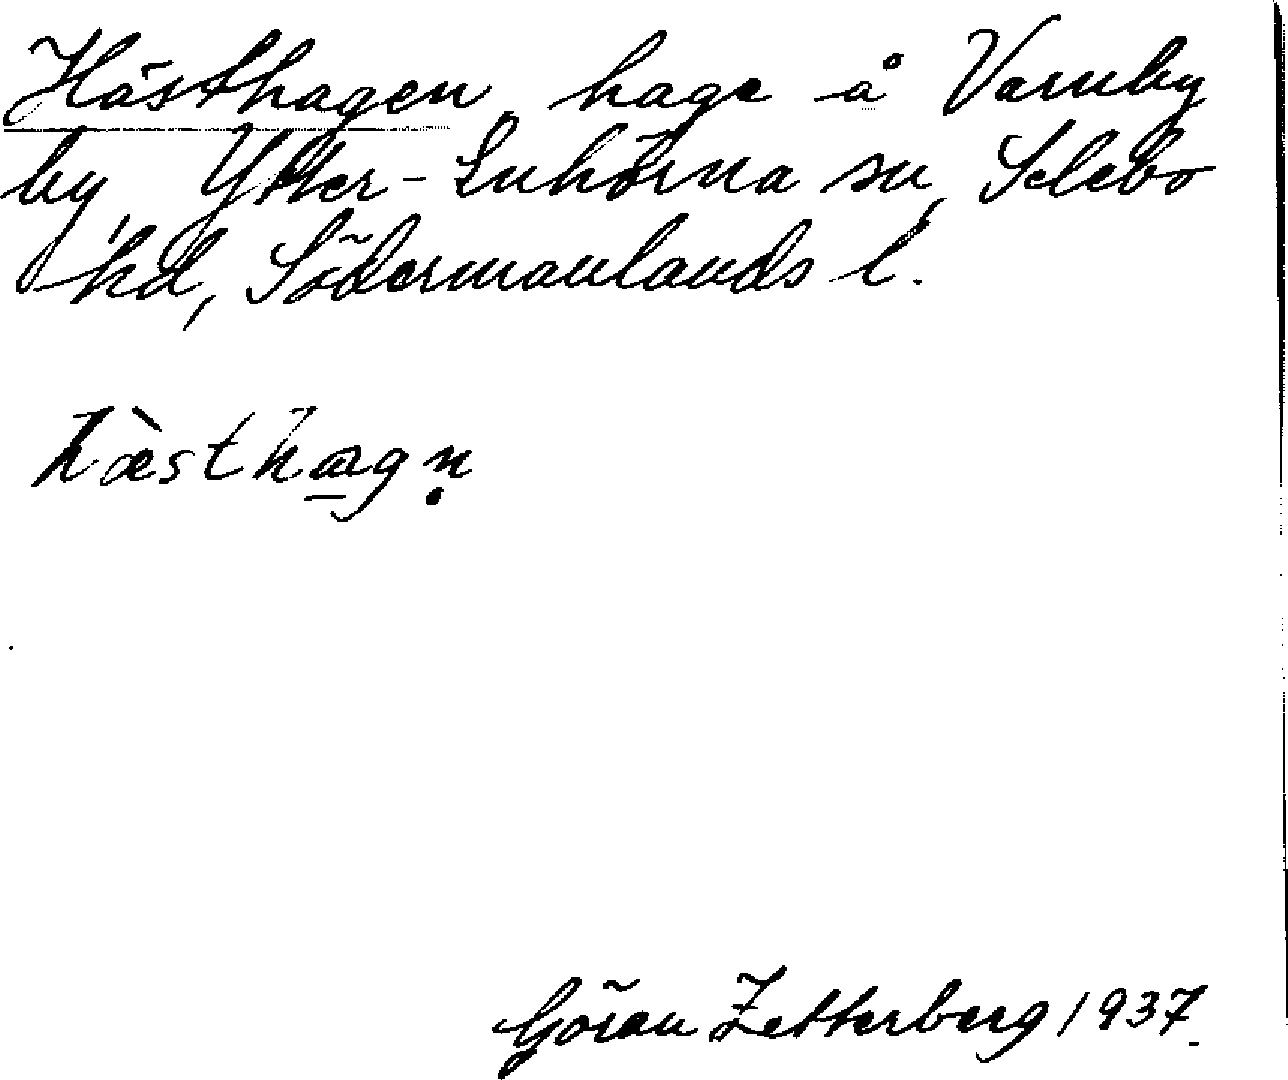 Hästhagen, hage å Varnby
by, Ytter-Enhörna sn, Selebo
hd, Södermanlands l.
hæ̀sthagṇ
Göran Zetterberg 1937.